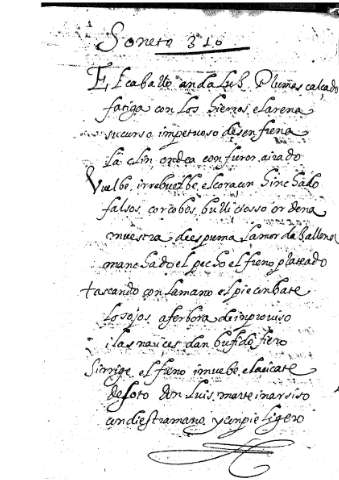 Soneto 316
El caballo andaluz Plumas calçado
fatiga con los hierros el arena
su curso impetuoso desenfrena
la clin ondea con furor airado
Vuelbe, i rrebuelbe, el coraçon hinchado
falsos, corcobos, bulliciosso ordena
muestra de espuma la morda llena
manchado el pecho el freno plateado
tascando con la mano, el pie conbate
los ojos aferbora de inproviso
i las narices dan bufido fiero
si rrige, el freno i mueibe, el acicate
de soto don luis, marte i narsiso
con diestra mano, y con pie ligero